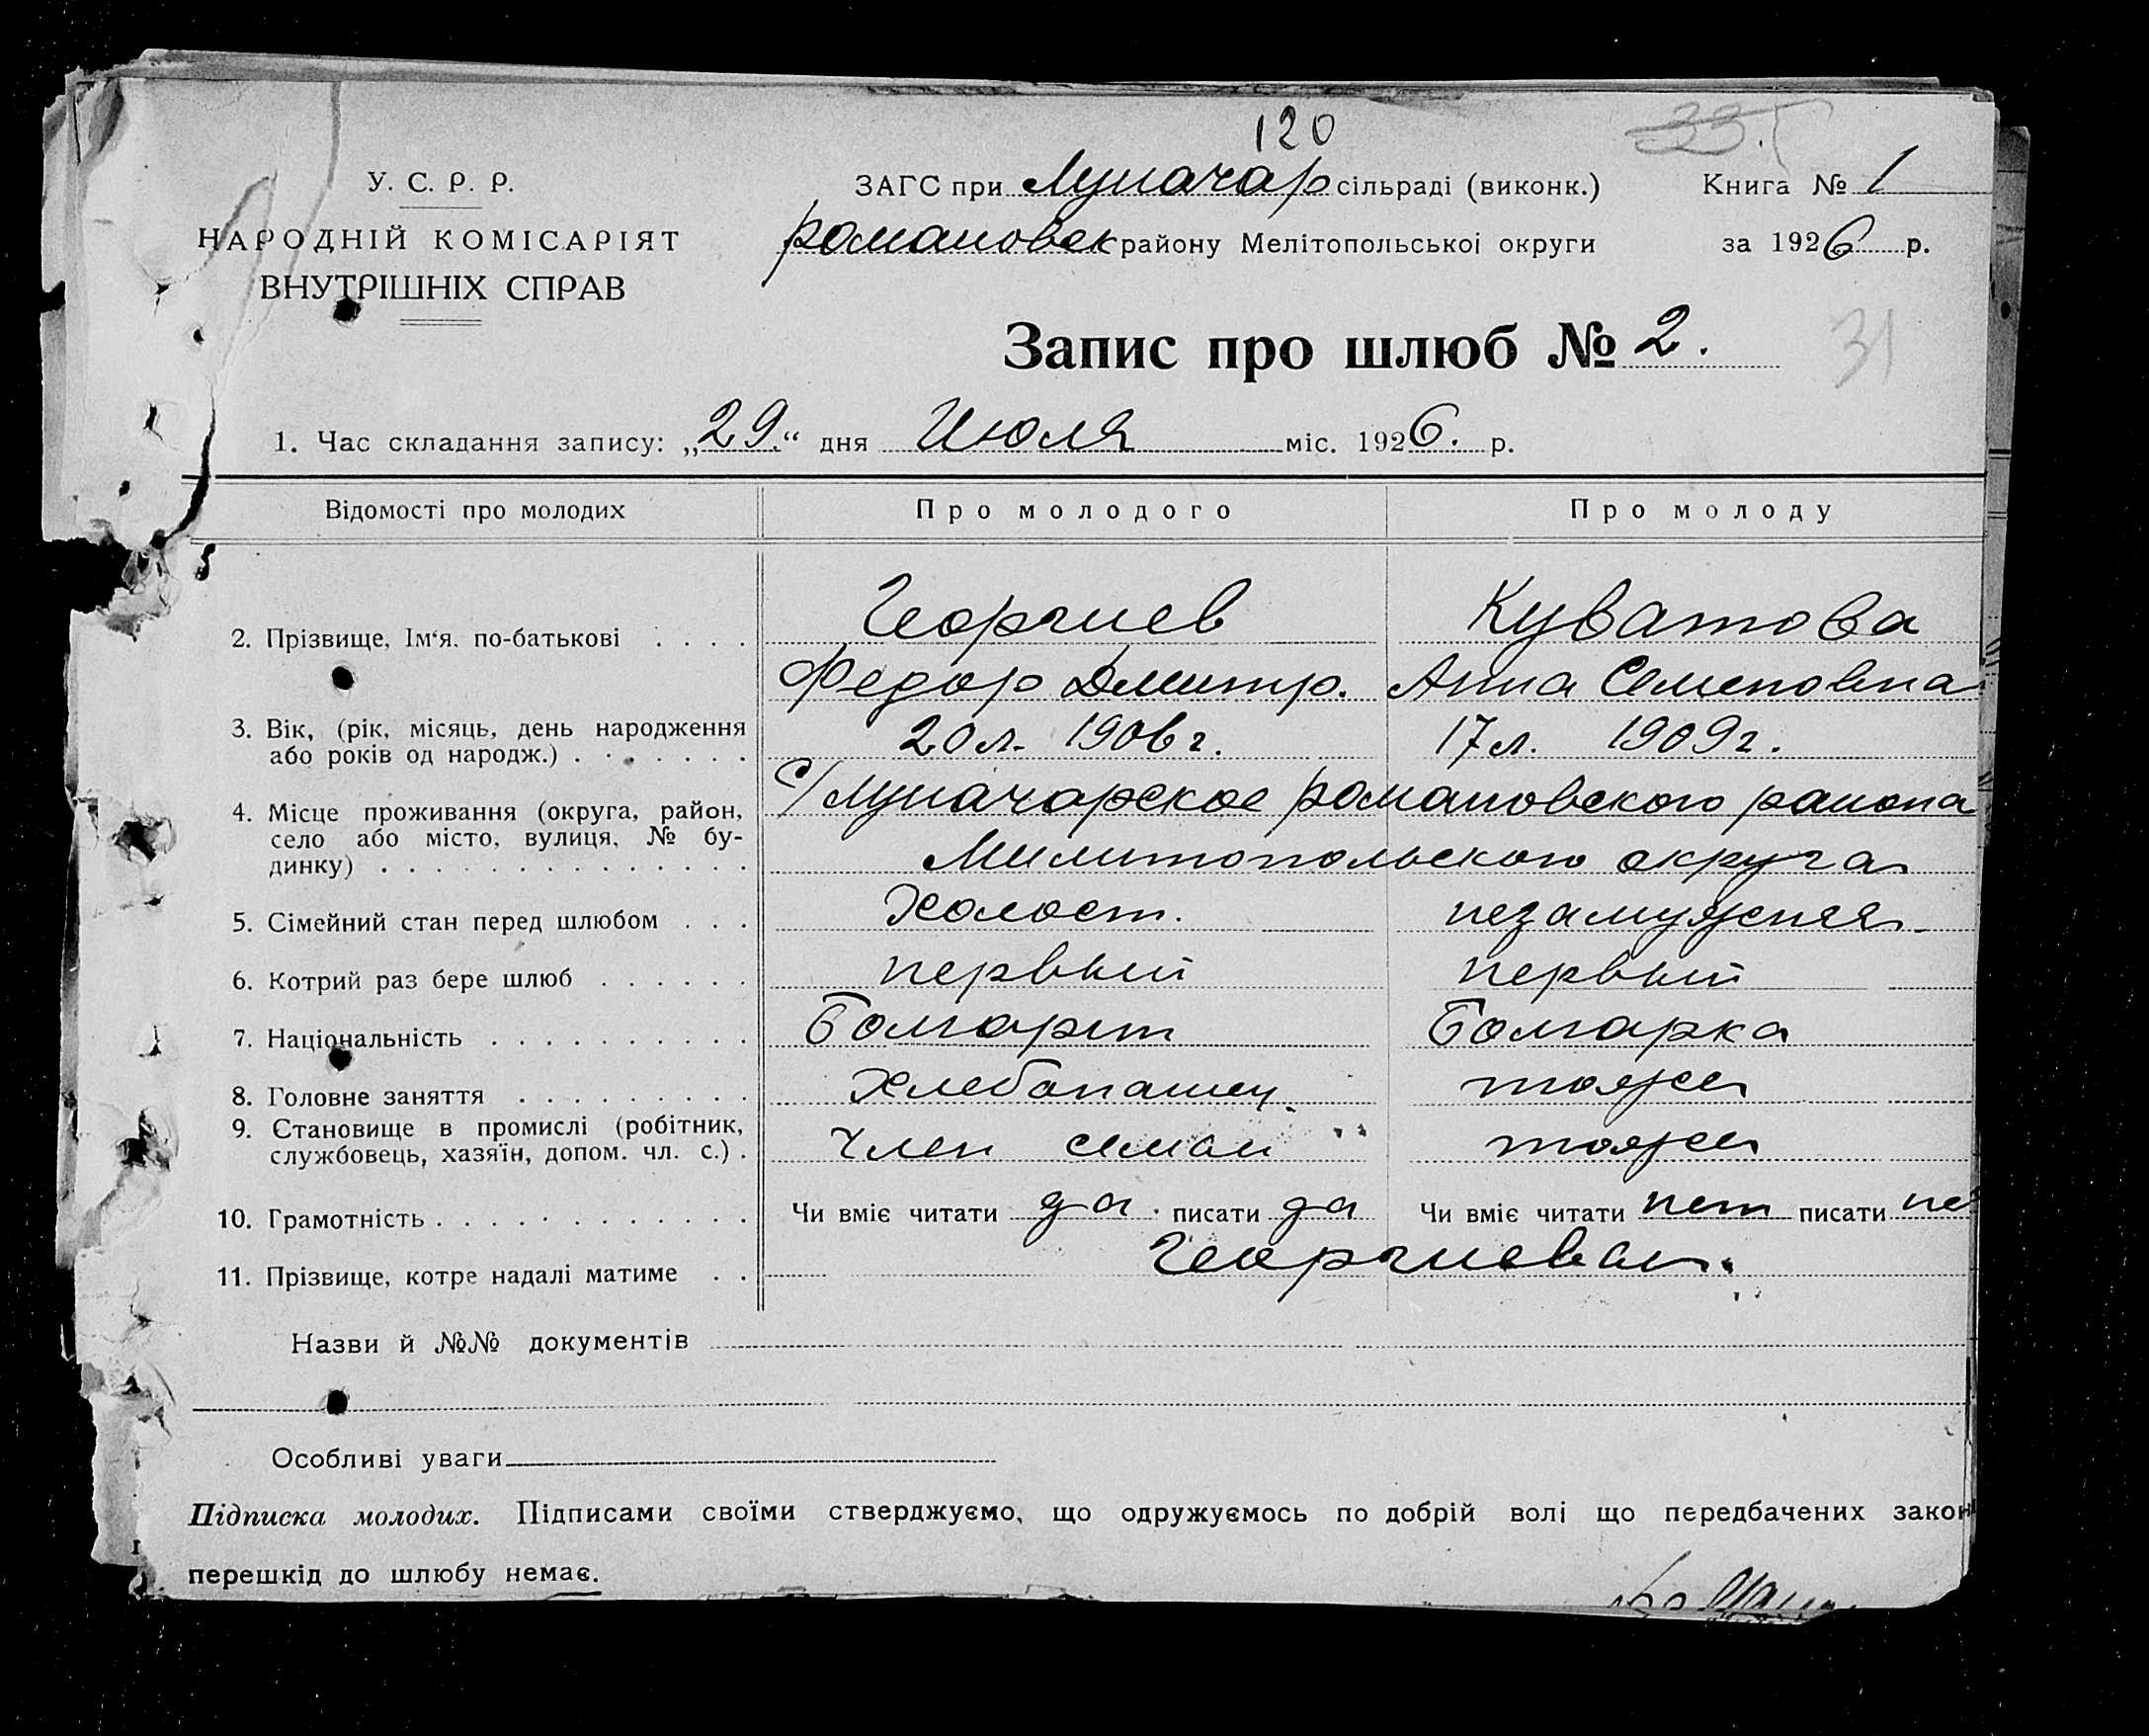 120
33.
У. С. Р. Р. ЗАГС при Луначар сільраді (виконк.) Книга № 1
НАРОДНІЙ КОМІСАРІЯТ романовск району Мелітопольської округи за 1926 р.
ВНУТРІШНІХ СПРАВ
Запис про шлюб № 2. 31
1. Час складання запису: „29.“ дня Июля міс. 1926. р.
Відомості про молодих Про молодого Про молоду
Георгиев Куватова
2. Прізвище, Ім‘я. по-батькові . . . .
Федор Дмитр. Анна Семеновна
3. Вік, (рік, місяць, день народження 20л. 1906г. 17л. 1909г.
або років од народж.) . . . . . . .
4. Місце проживання (округа, район, С/Луначарское романовского раиона
село або місто, вулиця, № бу-
динку) . . . . . . . . . . . . . . Милитопольского округа
5. Сімейний стан перед шлюбом . . . Холост. незамужняя
6. Котрий раз бере шлюб . . . . . . первый первый
7. Національність . . . . . . . . . . Болгарин Болгарка
8. Головне заняття . . . . . . . . . Хлебопашец тоже
9. Становище в промислі (робітник,
службовець, хазяїн, допом. чл. с.) . член семьи тоже
10. Грамотність . . . . . . . . . . . . Чи вміє читати да. писати да Чи вміє читати нет писати не
11. Прізвище, котре надалі матиме . . Георгиевы.
Назви й №№ документів
Особливі уваги
Підписка молодих. Підписами своїми стверджуємо, що одружуємось по добрій волі що передбачених закон
перешкід до шлюбу немає.